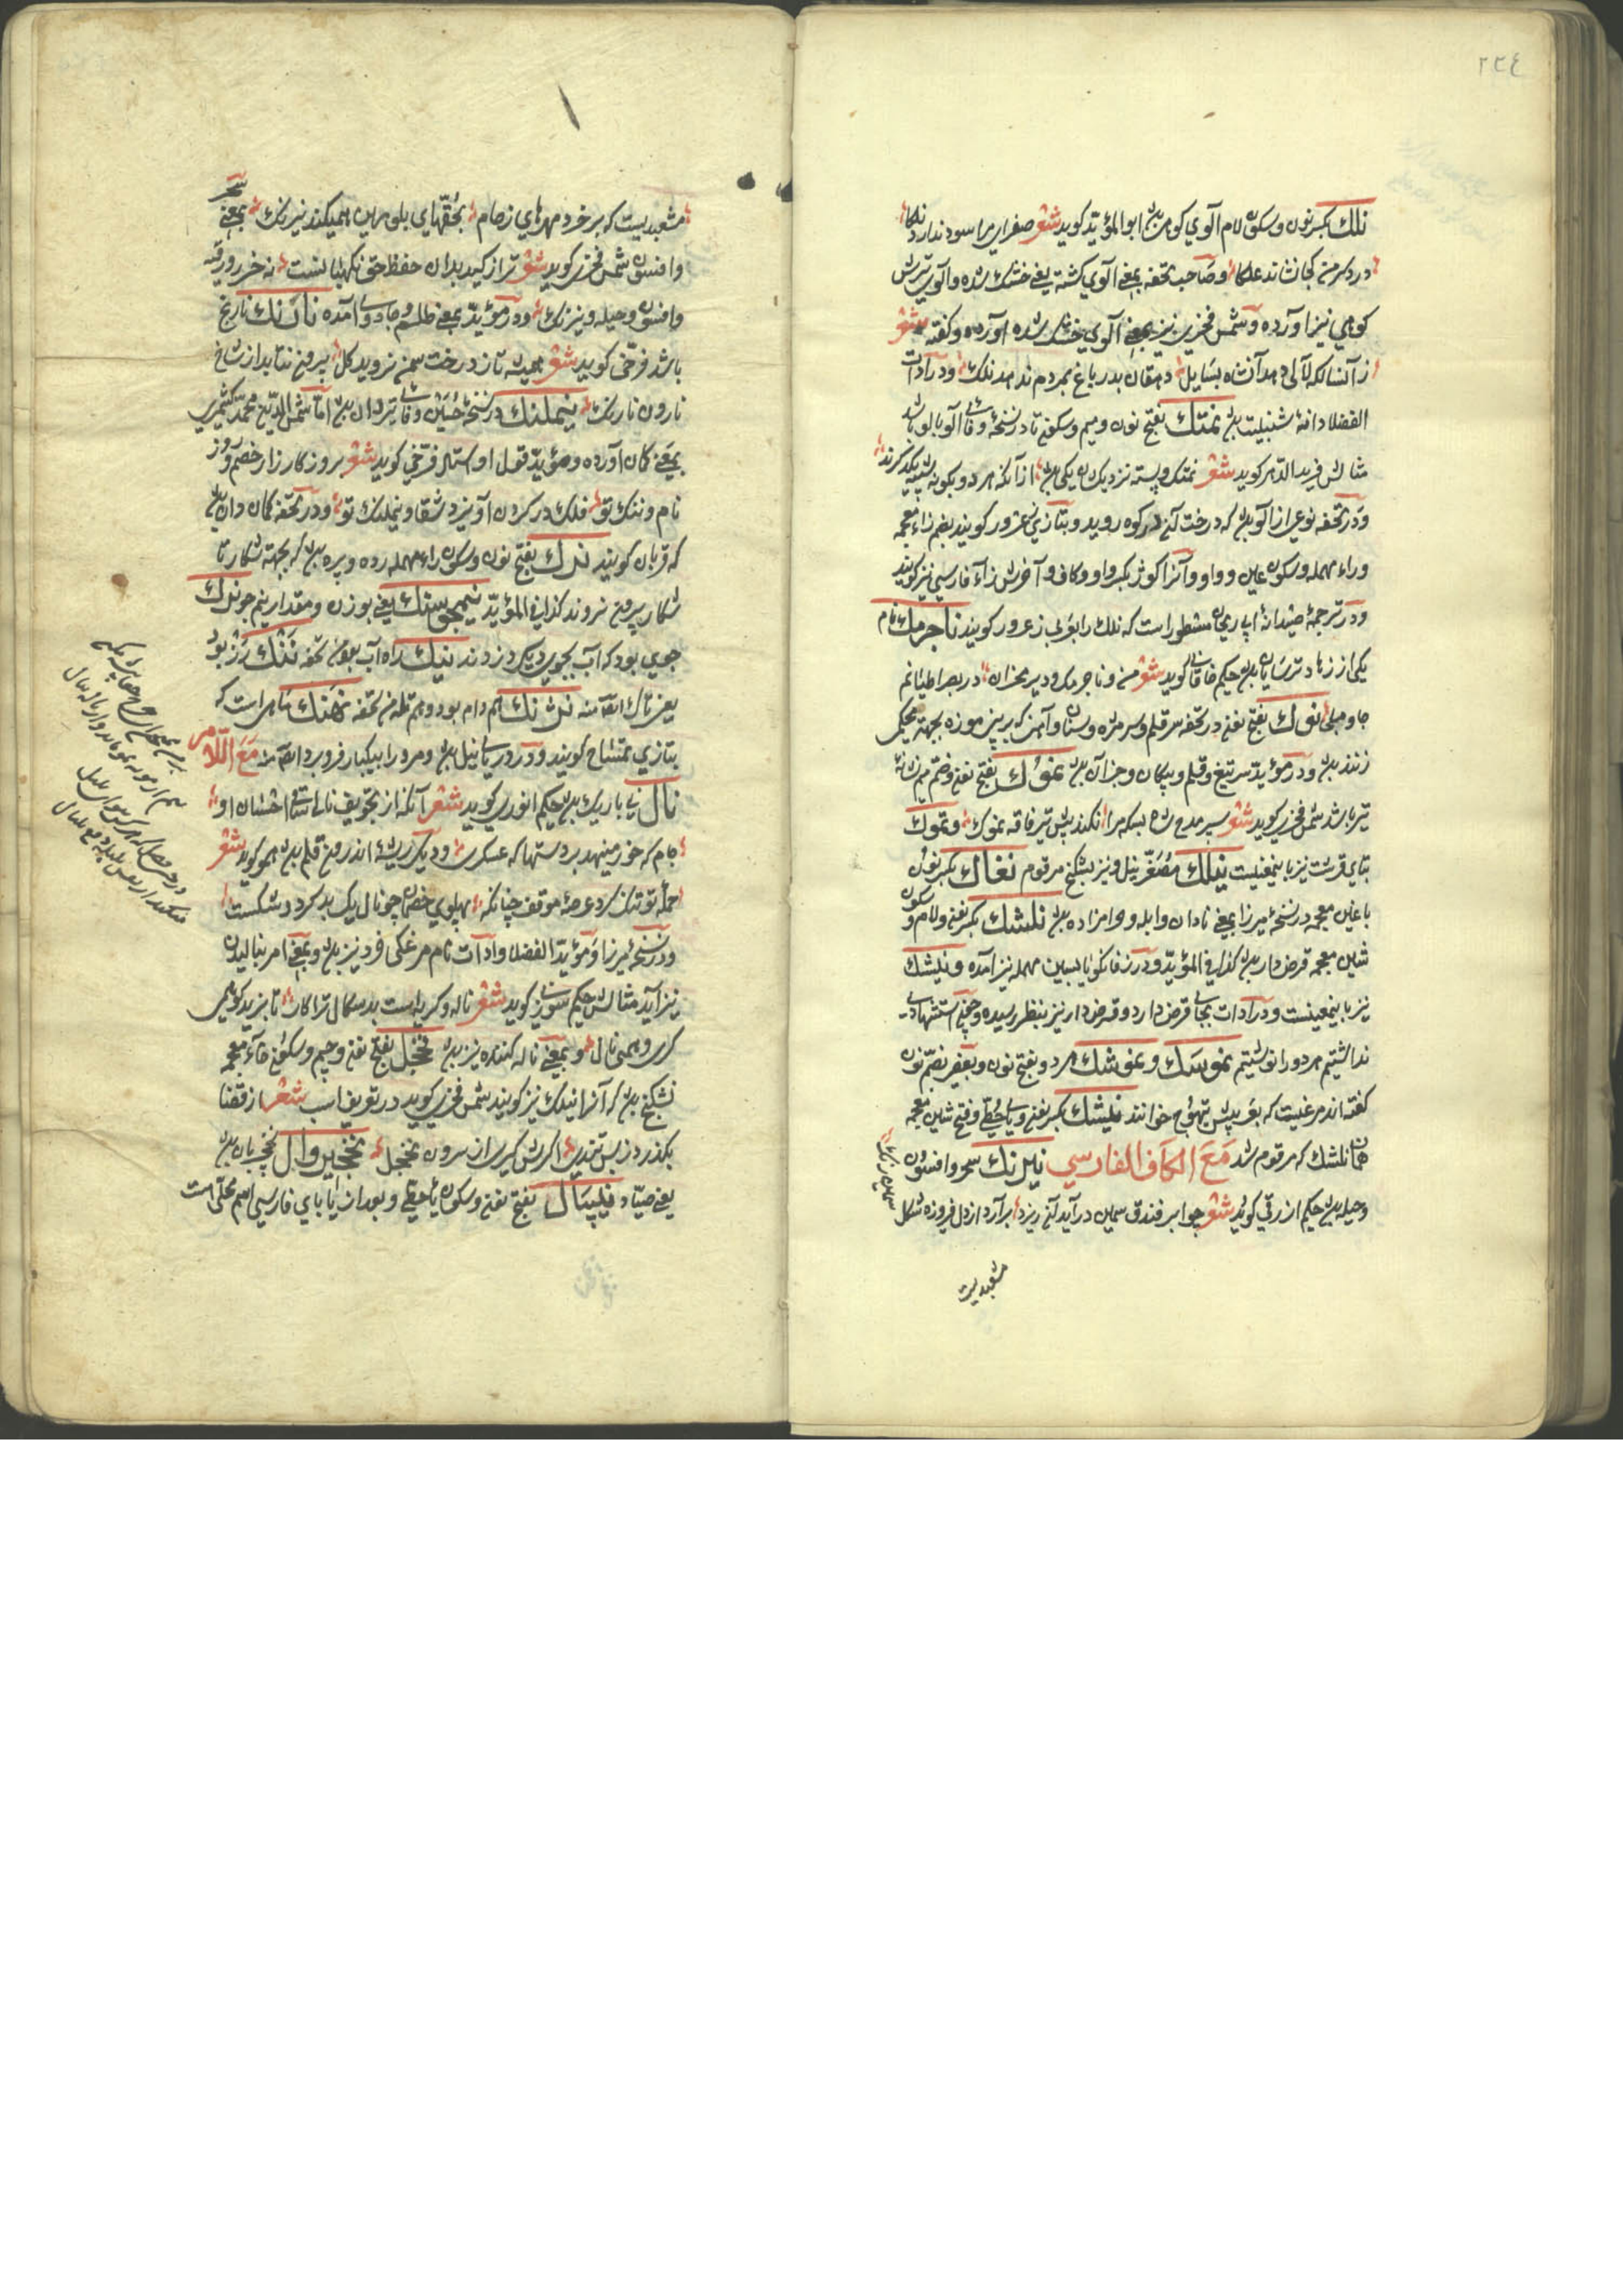 ٢٢٤
نلك بكسر نون و سكون لام آلوي كوهي بود ابو المؤيد كويد شعر صفراي مرا سود ندارد نلكا
درد سر من كجا نشاند علكا و صاحب تحفه بمعني آلوي كشته يعني خشك شده و آلوي ترش
كوهي نيز آورده و شمس فخري نيز بمعني آلوي خشك شده آورده و كفته شعر
ز آنسانكه لآلي دهد آنشاه بسايل دهقان بدر باغ بمردم ندهد نلك و در آدات
الفضلا دانهٔ شنبليت بود نمتك بفتح نون و ميم و سكون تا در نسخهٔ وفائي آلوبالو باشد
مثالش فريد الدهر كويد شعر نمتك و بسته نزديك يكي بود از آنكه هر دو بكونه
و در تحفه نوعي از آلو بود كه درخت آن در كوه رويد و بتازي زعرور كويند بضم زاء معجمه
و راء مهمله و سكون عين و واو و آنرا كوژ بكسر واو و كاف و آخرش زآء فارسي نيز كويند
و در ترجمهٔ صيدنهٔ ابي ريحان مسطور است كه نلك را بعربي زعرور كويند ناجرمك نام
يكي از زهاد ترسايان بود حكيم خاقاني كويد شعر من و ناجرمك و دير مخران در بقراطيانم
جا و ملجا نوك بفتح نون در تحفه سر قلم و سر مژه و سنان و آهن كه بر بن موزه بجهة محكمي
زنند بود و در مؤيد سر تيغ و قلم و پيكان و جز آن بود نموك بفتح نون و ضم ميم نشانهٔ
تير باشد شمس فخري كويد شعر سپر مدح شاه بسكه مرا نكند پس تير فاقه نموك و نتموك
بتاي قرشت نيز باينمعنيست نيلك مصغر نيل و نيز نشكنج مرقوم نغاك بكسر نون
با غين معجمه در نسخهٔ ميرزا بمعني نادان و ابله و حرامزاده بود نلشك بكسر نون و لام و سكون
شين معجمه قرض دار بود كذا في المؤيد و در زفانكويا بسين مهمله نيز آمده و نيلشك
نيز باينمعنيست و در آدات بجاي قرض دارد و قرض دار نيز بنظر رسيده و چون استشهادي
نداشتيم هر دو را نوشتيم نموسك و نموشك هر دو بفتح نون و بعضي بضم نون
كفته اند مرغيست كه بعربيش تيهوج خوانند نيلشك بكسر نون و ياء حطي و فتح شين معجمه
همان نلشك كه مرقوم شد مَعَ الكاف الفارسي نيرنك سحر و افسون
و حيله بود حكيم ازرقي كويد شعر چو ابر فندق سيمين در آبدان ريزد برآرد از دل فيروزه شكل
سيمين رنك
مشعبديست
مشعبديست كه بر خرد مهرهاي زخام بحقهاي بلورين همي كند نيرنك بمعني سحر
و افسون شمس فخري كويد شعر ترا ز كيد بدان حفظ حق نكهبانست نه حرز و رقيه
و افسون و حيله و نيرنك و در مؤيد بمعني طلسم و جادوئي آمده نارنك نارنج
باشد فرخي كويد شعر هميشه تا ز درخت سمن نرويد كل برون نتابد از شاخ
نارون نارنك نيملنك در نسخهٔ حسين وفائي تيردان بود اما شمس الدين محمد كشميري
بمعني كمان آورده و مؤيد قول او استاد فرخي كويد شعر روز كارزار خصم و روز
نام و ننك تو فلك در كردن آويزد شغا و نيملنك تو و در تحفه كمان دان بود
كه قربان كويند نرك بفتح نون و سكون راء مهمله رده و پره بود كه بجهة شكار تا
شكار بيرون نروند كذا في المؤيد نيمجوسنك يعني بوزن و مقدار نيم جو نيرك
جوي بود كه آب بجوي ديكر دزدند نيك راه آب بود في تحفه نشك رز بود
يعني تاك ايضا منه نرشنك هم دام بود و هم تله من تحفه نهنك ماهي است كه
بتازي تمساح كويند و در درياي نيل بود و مرد را بيكبار فرو برد ايضا منه مَعَ اللام
نال ني باريك بود حكيم انوري كويد شعر آنكه از تجويف نالي ساقي احسان او
جام كه خور مينهد بر دستها كه عسكري و ديكر ريشهٔ اندرون قلم بود همو كويد شعر
حملهٔ تو تنك كرد عرصهٔ موقف چنانكه پهلوي خصمان چو نال يك بدكر در شكست
و در نسخهٔ ميرزا و مؤيد الفضلا و آدات نام مرغكي خرد نيز بود و بمعني امر بناليدن
نيز آيد مثالش حكيم سوزني كويد شعر ناله و كريه است بدسكال ترا كار تا بزيد كو همي
كري و همي نال و بمعني ناله كننده نيز بود نخجل بفتح نون و جيم و سكون خاء معجمه
نشكنج بود كه آنرا نيلك نيز كويند شمس فخري كويد در تعريف اسب شعر از قضا
بكذرد ز بس تندي اكرش كيري از سرون نخجل نخجيروال نخجيربان بود
يعني صياد نيپال بفتح نون و سكون ياء حطي و بعد از يا باي فارسي اسم محلي است